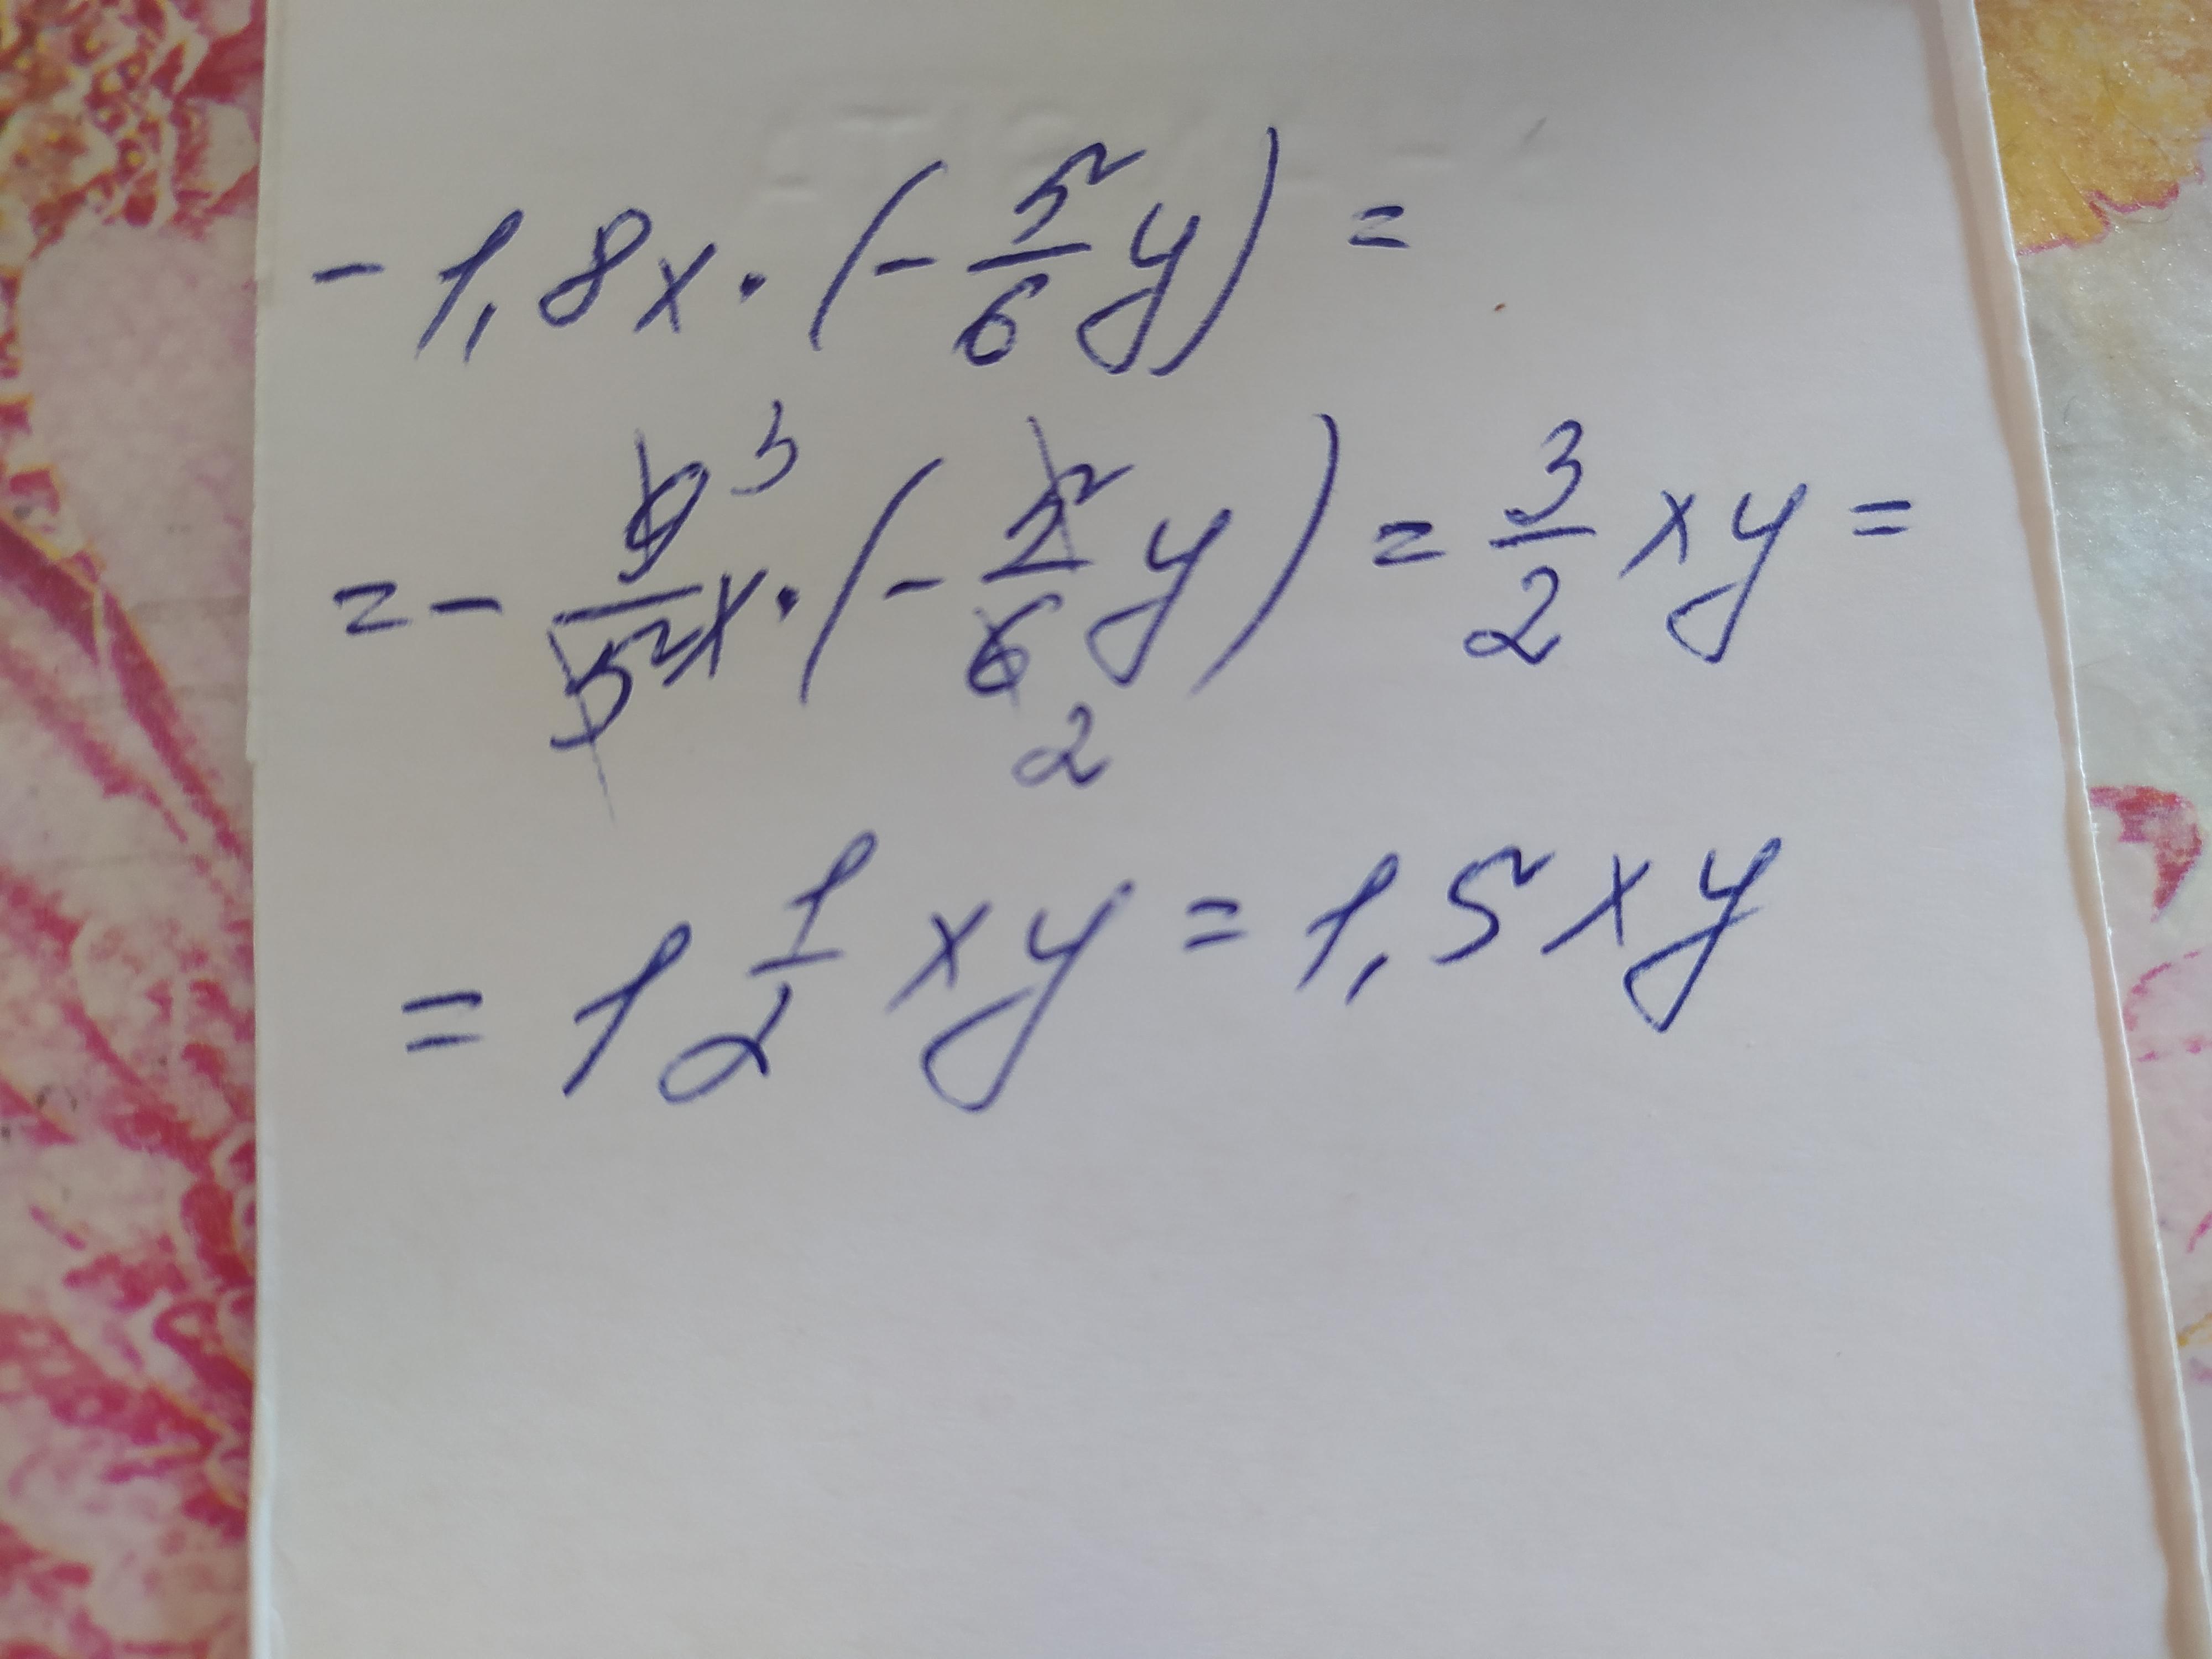 - 1,8x · (- 5/6 y) =
= - 9/5 x · (- 5/6 y) = 3/2 xy =
= 1 1/2 xy = 1,5xy